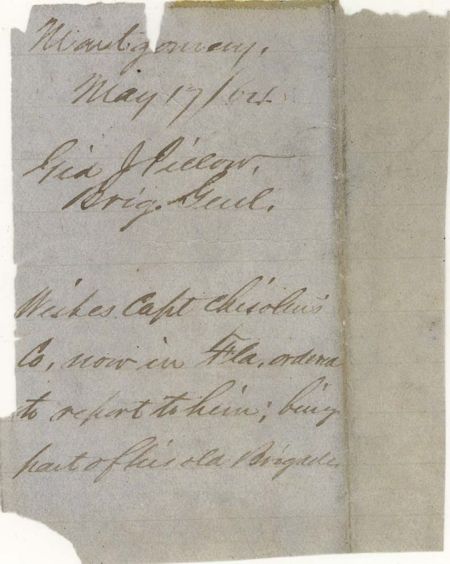 Montgomery.
May 17/64
Gid J Pillow,
Brig. Genl.
Wishes Capt Chisolm's
Co, now in Fla, ordered
to report to him; being
part of his old Brigade